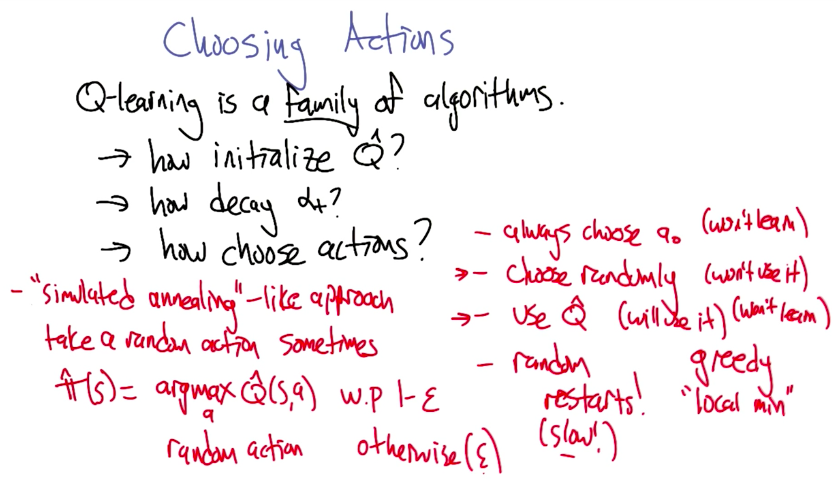 Choosing Actions
Q-learning is a family of algorithms.
→ how initialize Q̂?
→ how decay αt?
→ how choose actions?
- always choose a₀ (won't learn)
→ - choose randomly (won't use it)
→ - use Q̂ (will use it) (won't learn)
- random restarts! (slow!)
greedy "local min"
- "simulated annealing" - like approach
take a random action sometimes
π̂(s) = argmax Q̂(s,a) w.p 1-ε
a
random action otherwise (ε)